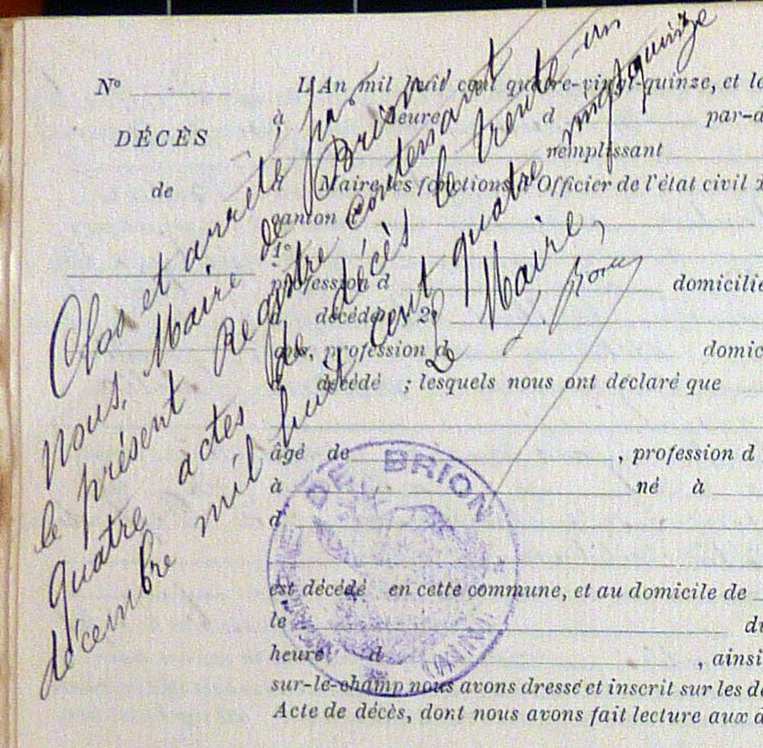 Nº
DÉCÈS
de
L'An mil huit cent quatre-vingt-quinze, et le
à heure d par-d
remplissant
d Maire les fonctions d'Officier de l'état civil
canton d
1º
profession d domicilié
d décédé 2º
ans, profession d domic
d décédé ; lesquels nous ont déclaré que
âgé de , profession d
à né à
d
est décédé en cette commune, et au domicile de
le du
heure d , ainsi
sur-le-champ nous avons dressé et inscrit sur les d
Acte de décès, dont nous avons fait lecture aux d
Clos et arrêté par
nous, Maire de Brion
le présent Registre contenant
quatre actes de décès le trente-un
décembre mil huit cent quatre vingt quinze
Le Maire,
DE BRION
(AIN)